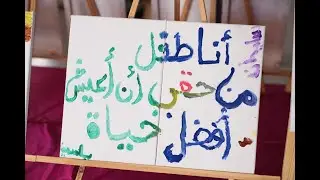 أنا طفل
من حقي أن أعيش
أفضل حياة